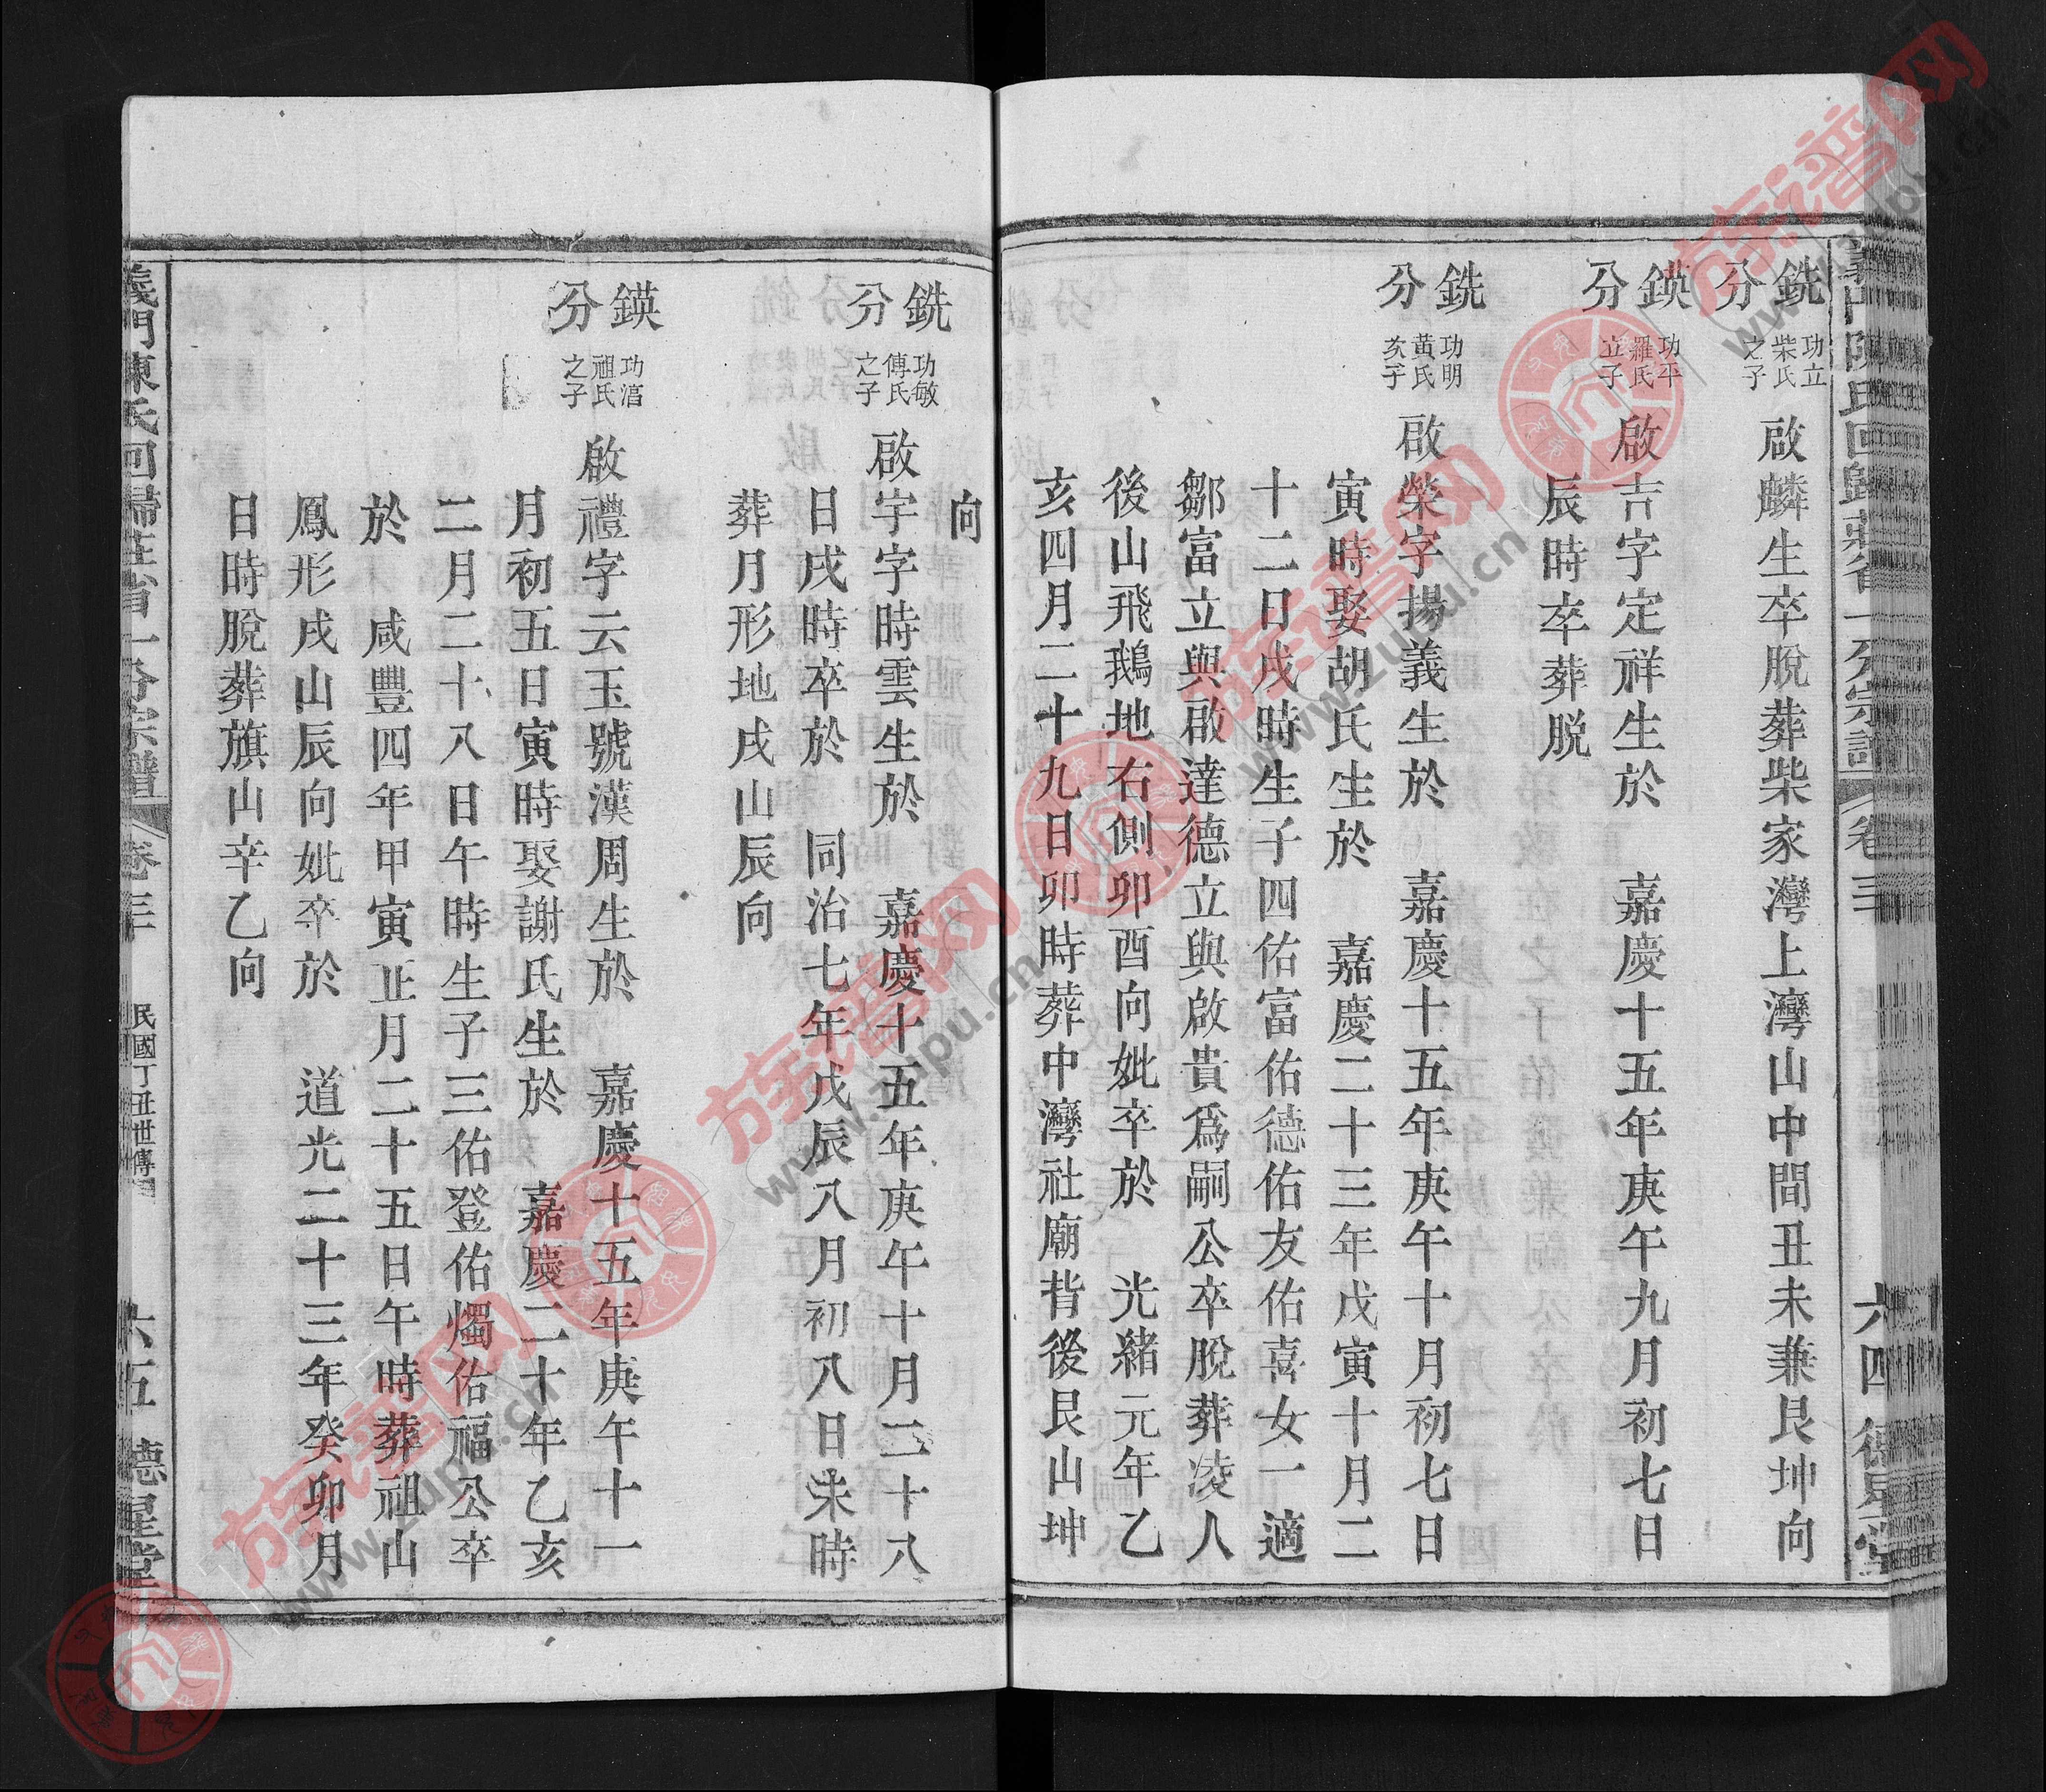 義門陳氏回歸莊省一分宗譜 卷三 六四 德星堂
銑分 功立柴氏之子 啟麟生卒脫葬柴家灣上灣山中間丑未兼艮坤向
鍈分 功平羅氏立子 啟吉字定祥生於 嘉慶十五年庚午九月初七日
辰時卒葬脫
銑分 功明黃氏次子 啟榮字揚義生於 嘉慶十五年庚午十月初七日
寅時娶胡氏生於 嘉慶二十三年戊寅十月二
十二日戌時生子四佑富佑德佑友佑喜女一適
鄒富立與啟達德立與啟貴為嗣公卒脫葬凌人
後山飛鵝地右側卯酉向妣卒於 光緒元年乙
亥四月二十九日卯時葬中灣社廟背後艮山坤
向
銑分 功敏傅氏之子 啟宇字時雲生於 嘉慶十五年庚午十月二十八
日戌時卒於 同治七年戊辰八月初八日未時
葬月形地戌山辰向
鍈分 功湻祖氏之子 啟禮字云玉號漢周生於 嘉慶十五年庚午十一
月初五日寅時娶謝氏生於 嘉慶二十年乙亥
二月二十八日午時生子三佑登佑燭佑福公卒
於 咸豐四年甲寅正月二十五日午時葬祖山
鳳形戌山辰向妣卒於 道光二十三年癸卯月
日時脫葬旗山辛乙向
義門陳氏回歸莊省一分宗譜 卷三 民國丁丑世傳 六五 德星堂
族谱网
www.zupu.cn
族谱网
www.zupu.cn
族谱网
www.zupu.cn
族谱网
www.zupu.cn